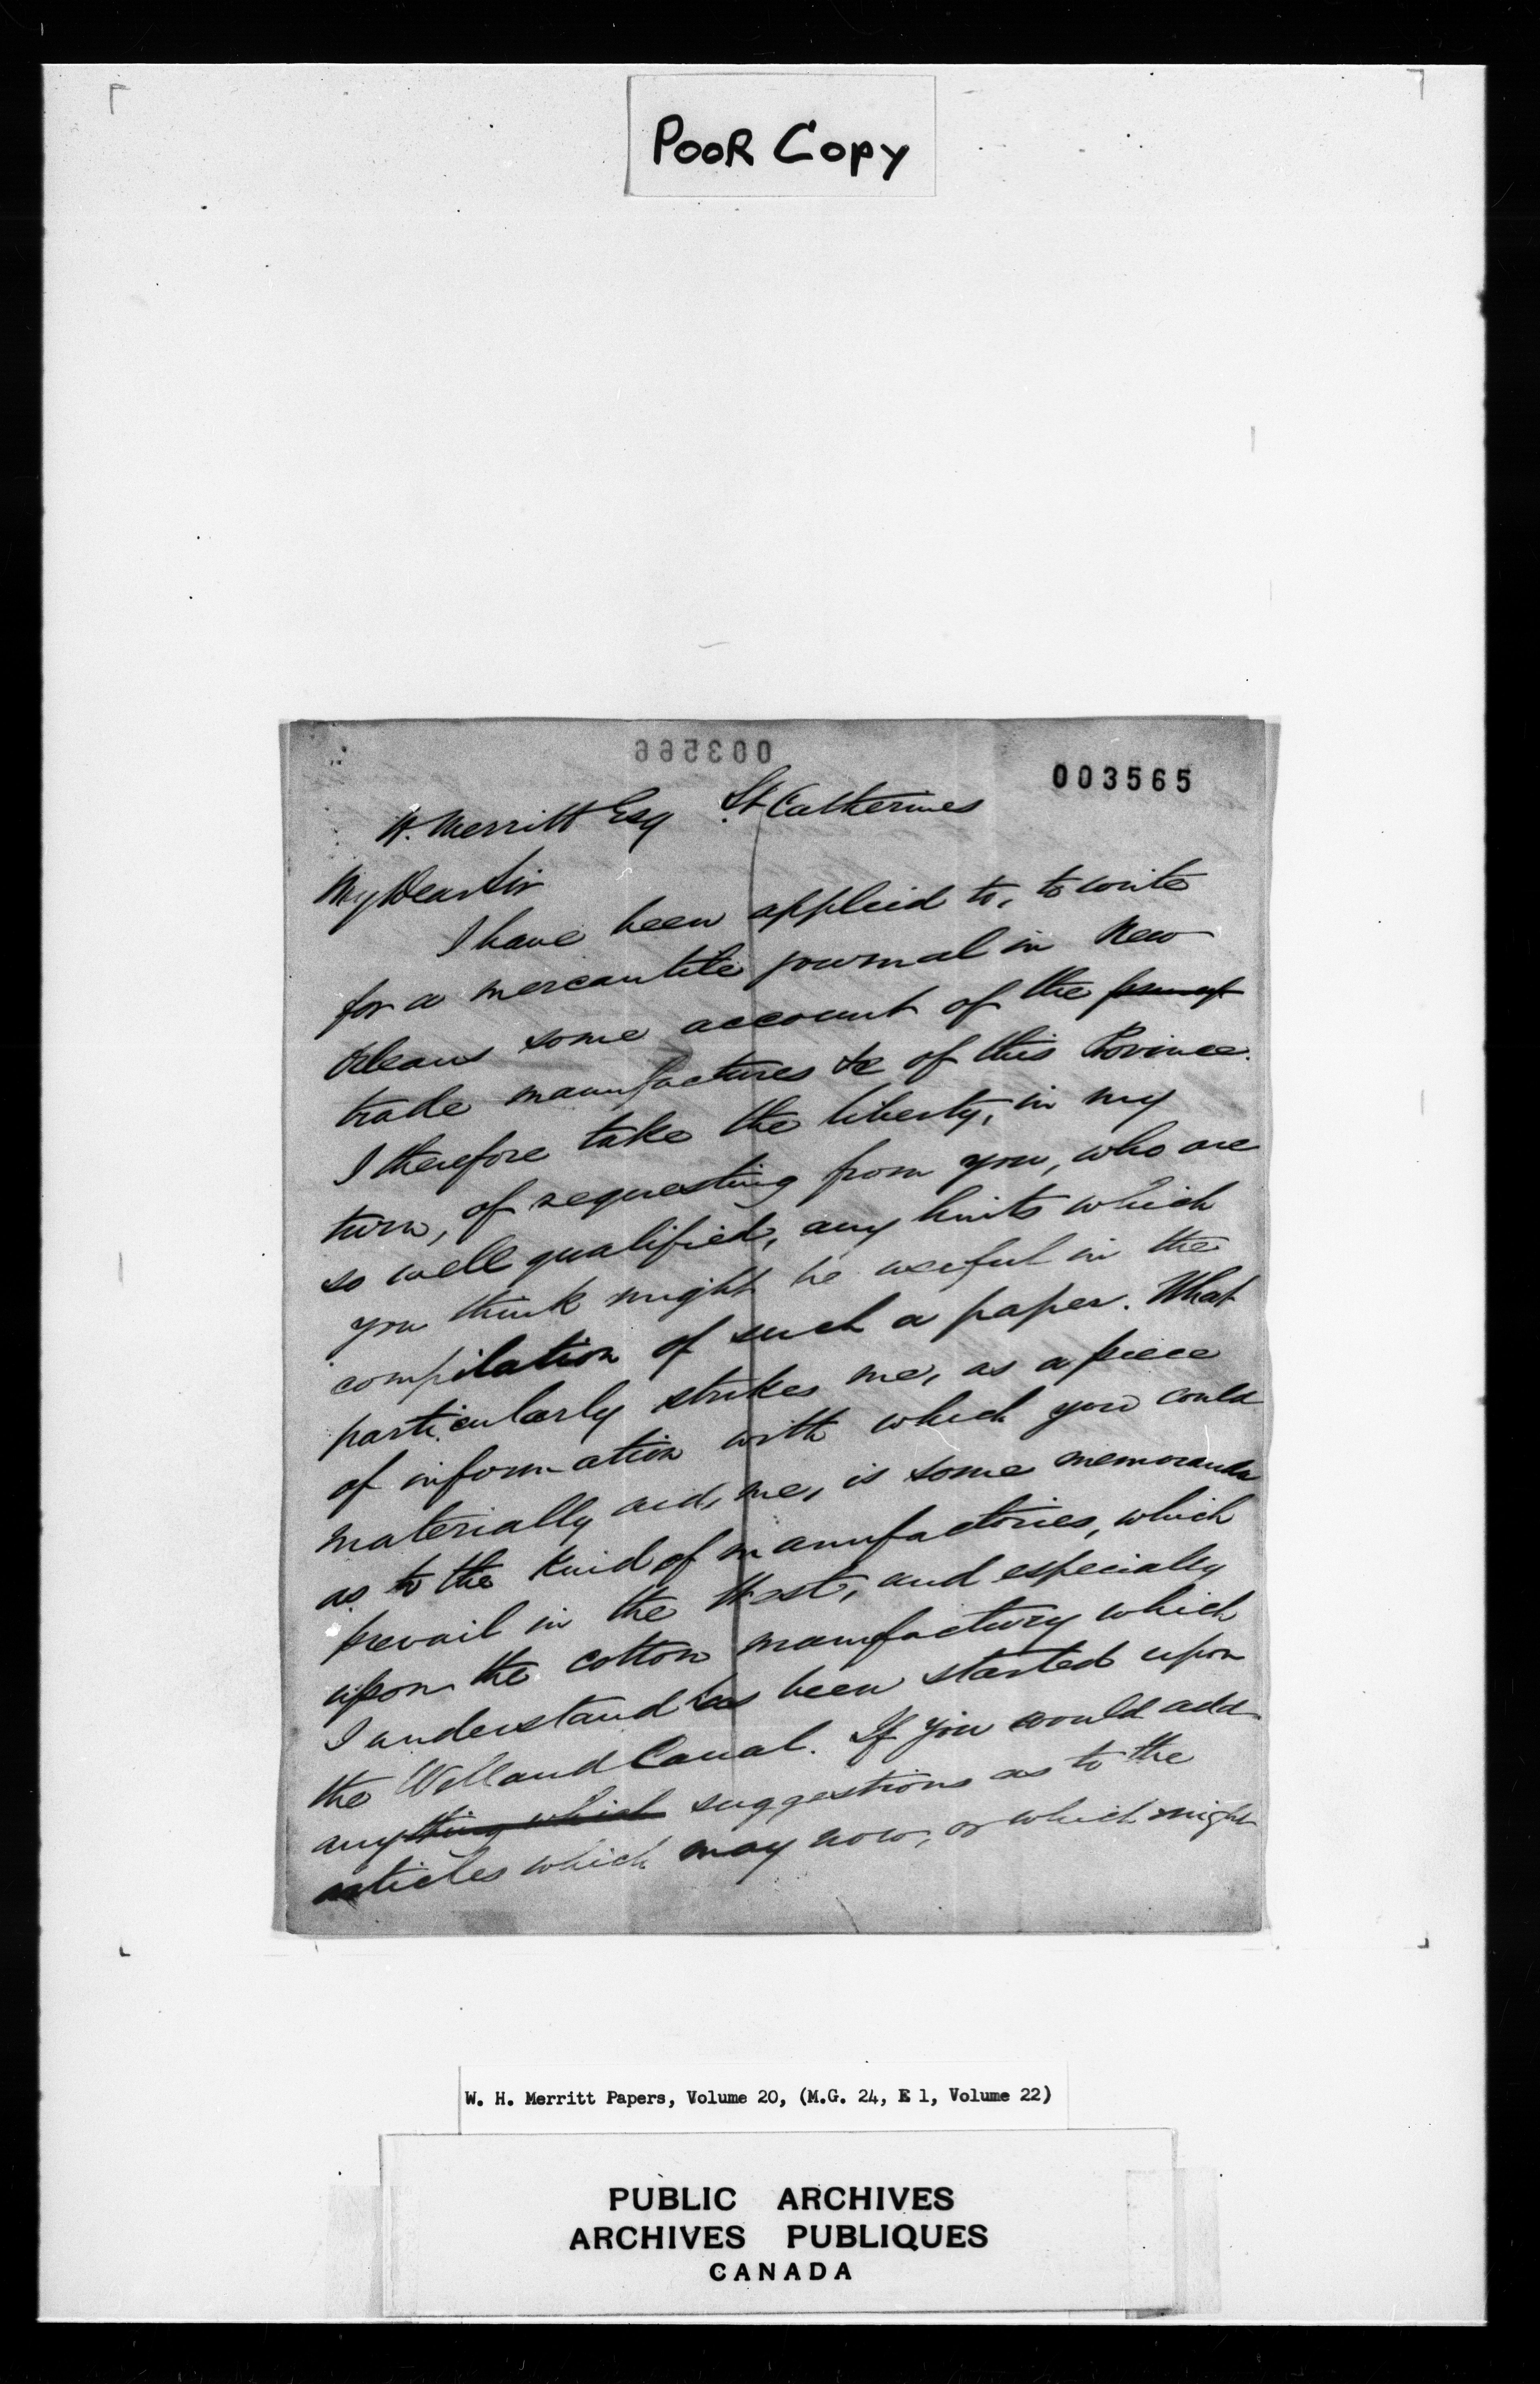 POOR Copy
003566
003565
W. Merritt Esq St Catherines
My Dear Sir
I have been applied to, to write
for a mercantile journal in New
Orleans some account of the
trade manufactures &c of this Province.
I therefore take the liberty, in my
turn, of requesting from you, who are
so well qualified, any hints which
you think might be useful in the
compilation of such a paper. What
particularly strikes me, as a piece
of information with which you could
materially aid me, is some memoranda
as to the kind of manufactories, which
prevail in the West, and especially
upon the cotton manufactury which
I understand has been started upon
the Welland Canal. If you would add
anything which suggestions as to the
articles which may now, or which might
W. H. Merritt Papers, Volume 20, (M.G. 24, E 1, Volume 22)
PUBLIC ARCHIVES
ARCHIVES PUBLIQUES
CANADA